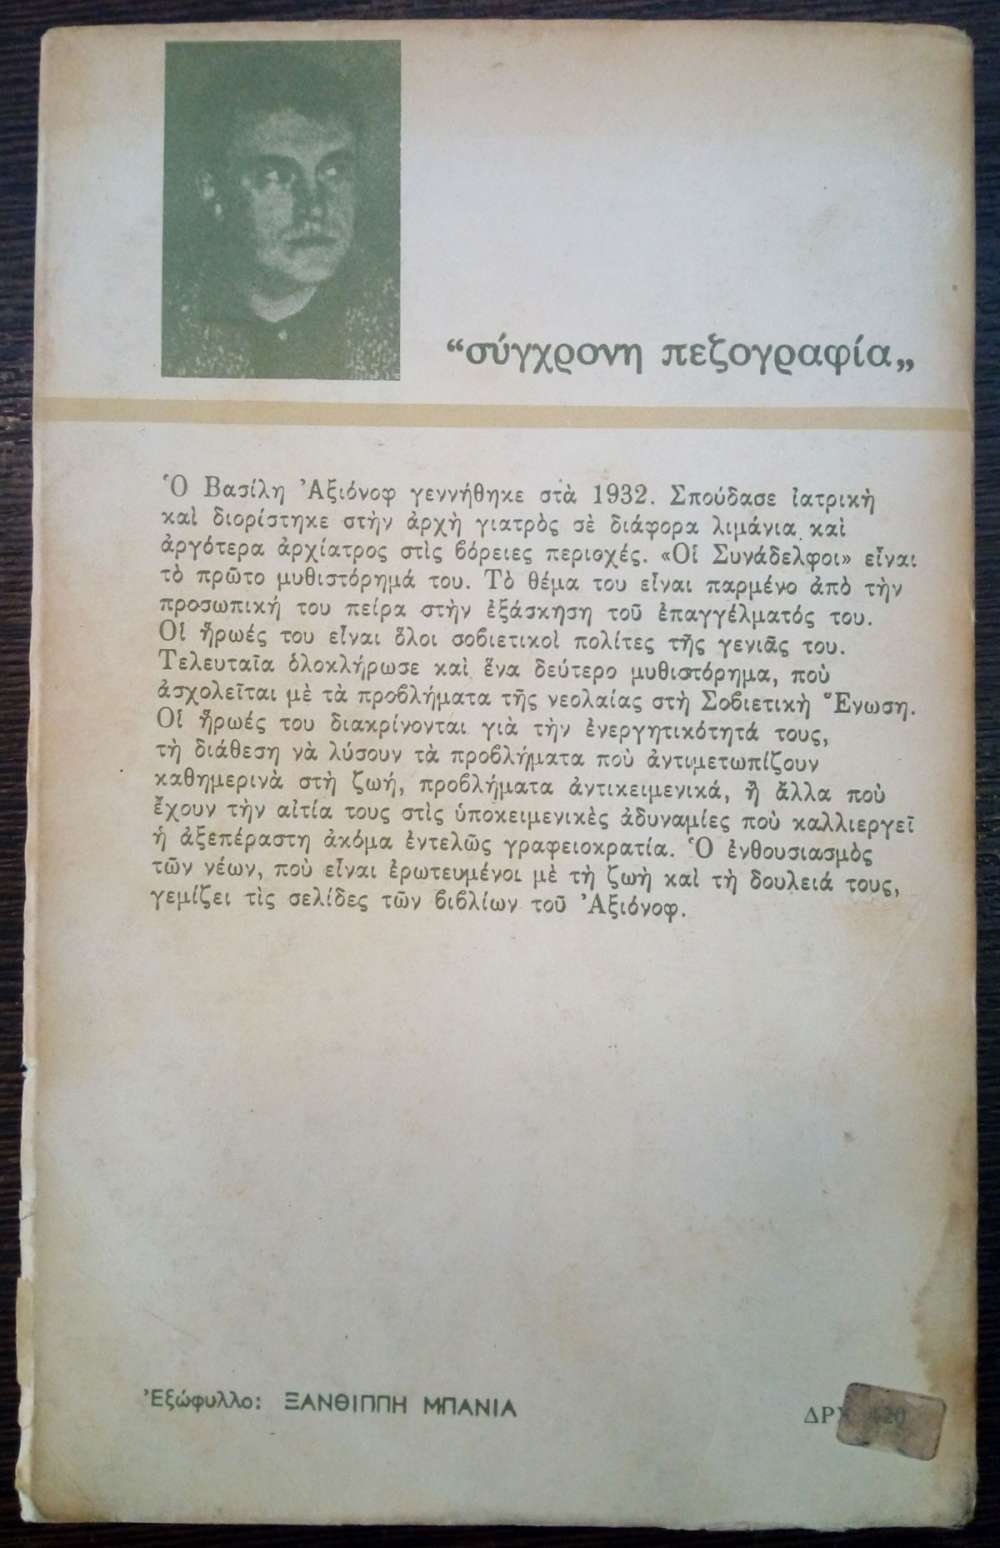 “σύγχρονη πεζογραφία„
Ὁ Βασίλη Ἀξιόνοφ γεννήθηκε στὰ 1932. Σπούδασε ἰατρικὴ
καὶ διορίστηκε στὴν ἀρχὴ γιατρὸς σὲ διάφορα λιμάνια καὶ
ἀργότερα ἀρχίατρος στὶς βόρειες περιοχές. «Οἱ Συνάδελφοι» εἶναι
τὸ πρῶτο μυθιστόρημά του. Τὸ θέμα του εἶναι παρμένο ἀπὸ τὴν
προσωπική του πείρα στὴν ἐξάσκηση τοῦ ἐπαγγέλματός του.
Οἱ ἥρωές του εἶναι ὅλοι σοβιετικοὶ πολίτες τῆς γενιᾶς του.
Τελευταῖα ὁλοκλήρωσε καὶ ἕνα δεύτερο μυθιστόρημα, ποὺ
ἀσχολεῖται μὲ τὰ προβλήματα τῆς νεολαίας στὴ Σοβιετικὴ Ἕνωση.
Οἱ ἥρωές του διακρίνονται γιὰ τὴν ἐνεργητικότητά τους,
τὴ διάθεση νὰ λύσουν τὰ προβλήματα ποὺ ἀντιμετωπίζουν
καθημερινὰ στὴ ζωή, προβλήματα ἀντικειμενικά, ἢ ἄλλα ποὺ
ἔχουν τὴν αἰτία τους στὶς ὑποκειμενικὲς ἀδυναμίες ποὺ καλλιεργεῖ
ἡ ἀξεπέραστη ἀκόμα ἐντελῶς γραφειοκρατία. Ὁ ἐνθουσιασμὸς
τῶν νέων, ποὺ εἶναι ἐρωτευμένοι μὲ τὴ ζωὴ καὶ τὴ δουλειά τους,
γεμίζει τὶς σελίδες τῶν βιβλίων τοῦ Ἀξιόνοφ.
Ἐξώφυλλο: ΞΑΝΘΙΠΠΗ ΜΠΑΝΙΑ
ΔΡΧ